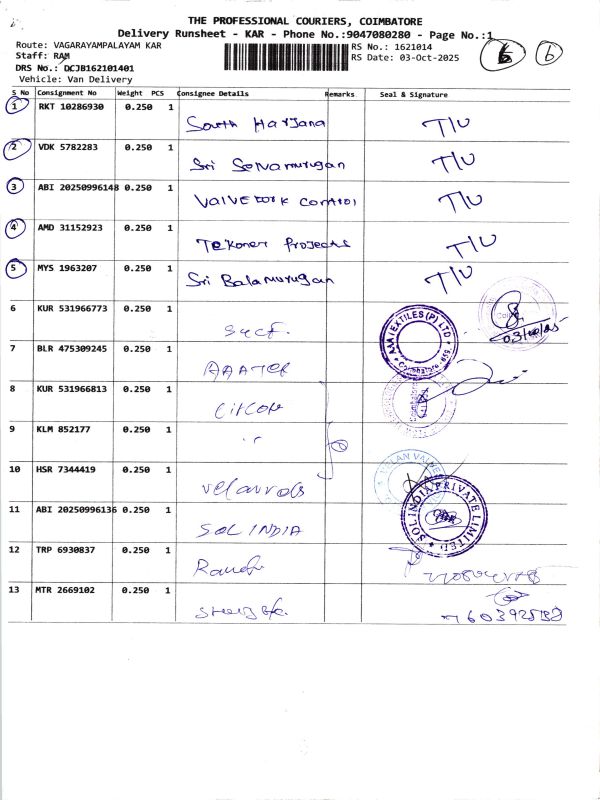 THE PROFESSIONAL COURIERS, COIMBATORE
Delivery Runsheet - KAR - Phone No.:9047080280 - Page No.:1
Route: VAGARAYAMPALAYAM KAR
RS No.: 1621014
6
Staff: RAM
RS Date: 03-Oct-2025
DRS No.: DCJB162101401
Vehicle: Van Delivery
S No Consignment No Weight PCS Consignee Details Remarks Seal & Signature
1 RKT 10286930 0.250 1 South Harjana T/U
2 VDK 5782283 0.250 1 Sri Selvamurugan T/U
3 ABI 20250996148 0.250 1 Valvetork Control T/U
4 AMD 31152923 0.250 1 Tekoner Projects T/U
5 MYS 1963207 0.250 1 Sri Balamurugan T/U
6 KUR 531966773 0.250 1
03/10/25
7 BLR 475309245 0.250 1
8 KUR 531966813 0.250 1
9 KLM 852177 0.250 1 "
10 HSR 7344419 0.250 1
11 ABI 20250996136 0.250 1 SOL INDIA
SOL INDIA PRIVATE LIMITED
12 TRP 6930837 0.250 1
13 MTR 2669102 0.250 1